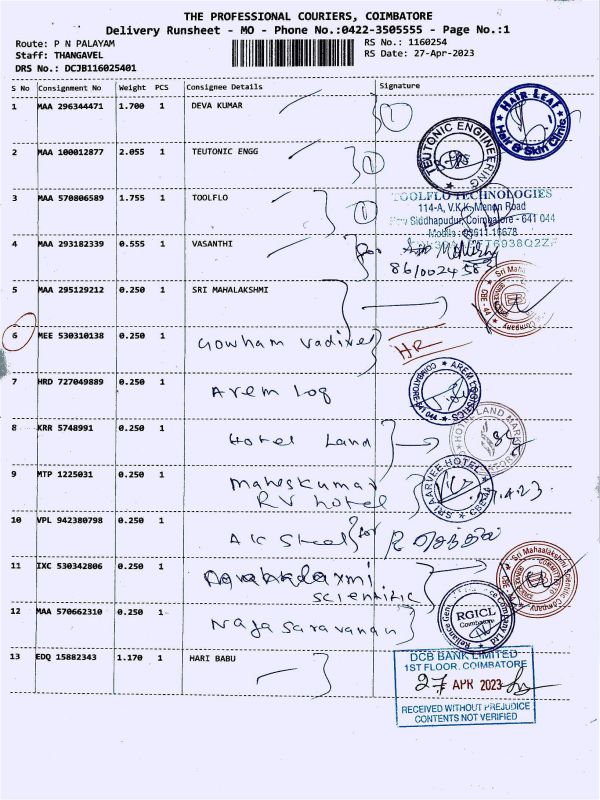 THE PROFESSIONAL COURIERS, COIMBATORE
Delivery Runsheet - MO - Phone No.:0422-3505555 - Page No.:1
Route: P N PALAYAM
Staff: THANGAVEL
DRS No.: DCJB116025401
RS No.: 1160254
RS Date: 27-Apr-2023
S No Consignment No Weight PCS Consignee Details Signature
1 MAA 296344471 1.700 1 DEVA KUMAR 1
HAIR LEAF Hair & Skin Clinic
2 MAA 100012877 2.055 1 TEUTONIC ENGG 1
TEUTONIC ENGINEERING
3 MAA 570806589 1.755 1 TOOLFLO 1
TOOLFLO TECHNOLOGIES
114-A, V.K.K. Menon Road
New Siddhapudur, Coimbatore - 641 044
4 MAA 293182339 0.555 1 VASANTHI for
8610024585
5 MAA 295129212 0.250 1 SRI MAHALAKSHMI
6 MEE 530310138 0.250 1 Gowham Vadivel HR
7 HRD 727049889 0.250 1 Arem log
AREM LOGISTICS
8 KRR 5748991 0.250 1 Hotel Land
HOTEL LAND MARK
9 MTP 1225031 0.250 1 Maheskumar
RV hotel
SRI AARVEE HOTEL
10 VPL 942380798 0.250 1 AK Steel for
11 IXC 530342806 0.250 1
scientific
Sri Mahaalakshmi Scientific Company
12 MAA 570662310 0.250 1 Naga Saravanan
RGICL
Coimbatore
13 EDQ 15882343 1.170 1 HARI BABU
DCB BANK LIMITED
1ST FLOOR, COIMBATORE
27 APR 2023
RECEIVED WITHOUT PREJUDICE
CONTENTS NOT VERIFIED